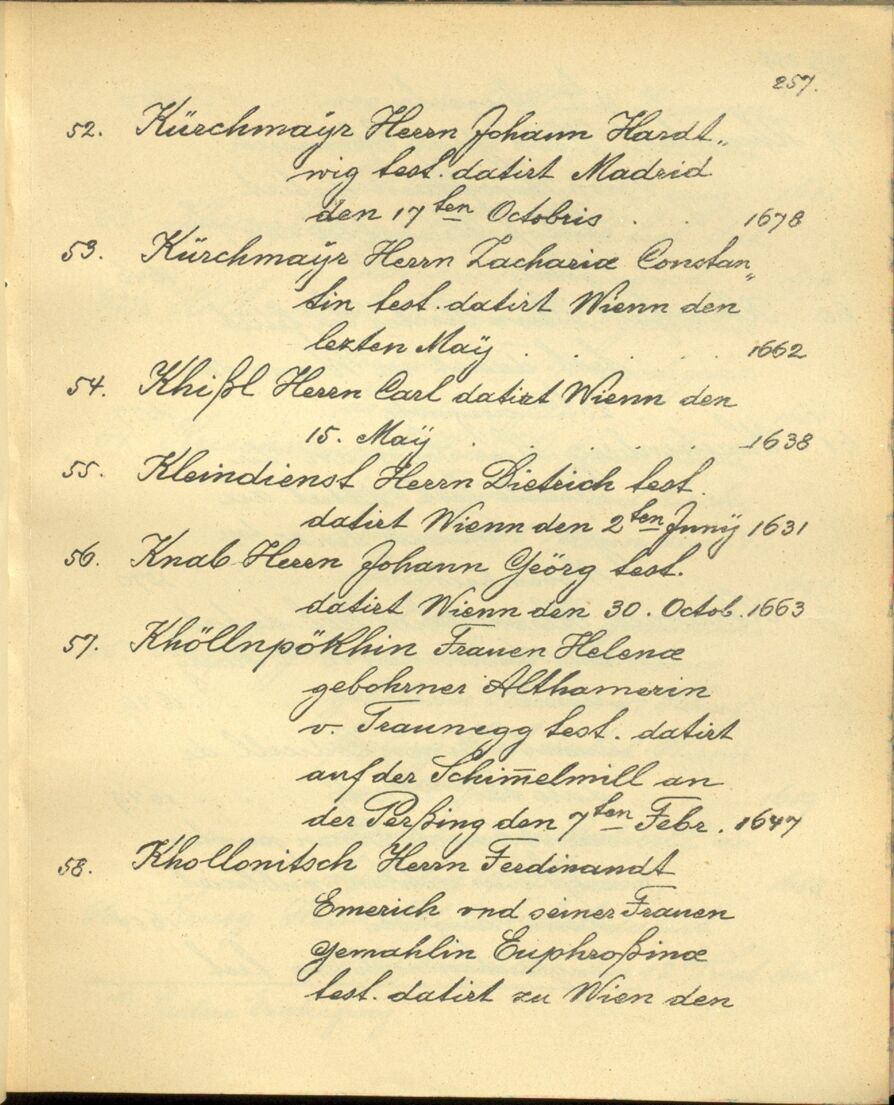 257.
52. Kürchmayr Herrn Johann Hardt„
wig test. datirt Madrid
den 17ten Octobris . . 1678
53. Kürchmaÿr Herrn Zachariæ Constan„
tin test. datirt Wienn den
lezten Maÿ . . . . 1662
54. Khißl Herrn Carl datirt Wienn den
15. Maÿ . . . . . 1638
55. Kleindienst Herrn Dietrich test.
datirt Wienn den 2ten Junÿ 1631
56. Knab Herrn Johann Geörg test.
datirt Wienn den 30. Octob. 1663
57. Khöllnpökhin Frauen Helenæ
gebohrner Althamerin
v. Traunegg test. datirt
auf der Schim̅elmill an
der Perßing den 7ten Febr. 1647
58. Khollonitsch Herrn Ferdinandt
Emerich vnd seiner Frauen
Gemahlin Euphroßinæ
test. datirt zu Wien den